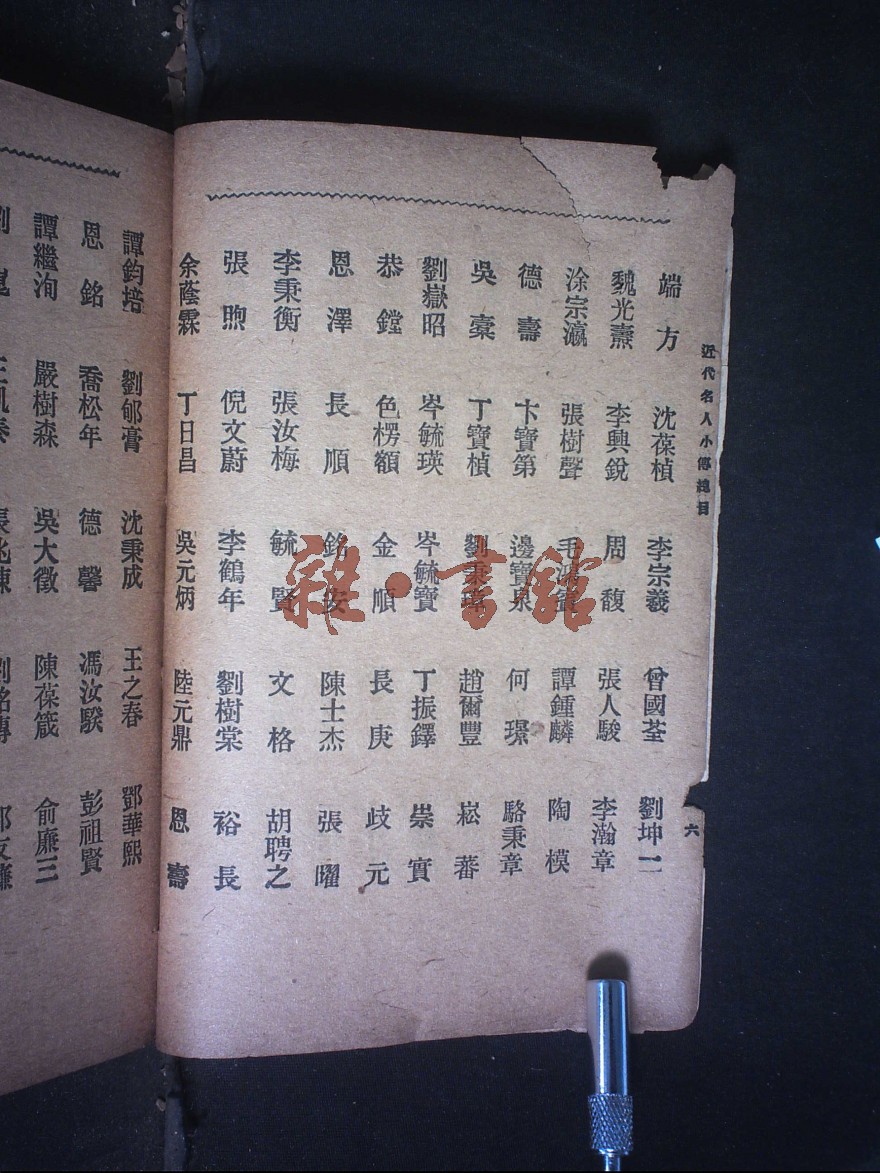 近代名人小傳總目
六
端方 沈葆楨 李宗羲 曾國荃 劉坤一
魏光燾 李興銳 周馥 張人駿 李瀚章
涂宗瀛 張樹聲 毛鴻賓 譚鍾麟 陶模
德壽 卞寶第 邊寶泉 何璟 駱秉章
吳棠 丁寶楨 劉秉璋 趙爾豐 崧蕃
劉嶽昭 岑毓瑛 岑毓寶 丁振鐸 崇實
恭鏜 色楞額 金順 長庚 歧元
恩澤 長順 銘安 陳士杰 張曜
李秉衡 張汝梅 毓賢 文格 胡聘之
張煦 倪文蔚 李鶴年 劉樹棠 裕長
余蔭霖 丁日昌 吳元炳 陸元鼎 恩壽
譚鈞培 劉郇膏 沈秉成 王之春 鄧華熙
恩銘 喬松年 德馨 馮汝騤 彭祖賢
譚繼洵 嚴樹森 吳大徵 陳葆箴 俞廉三
雜·書館